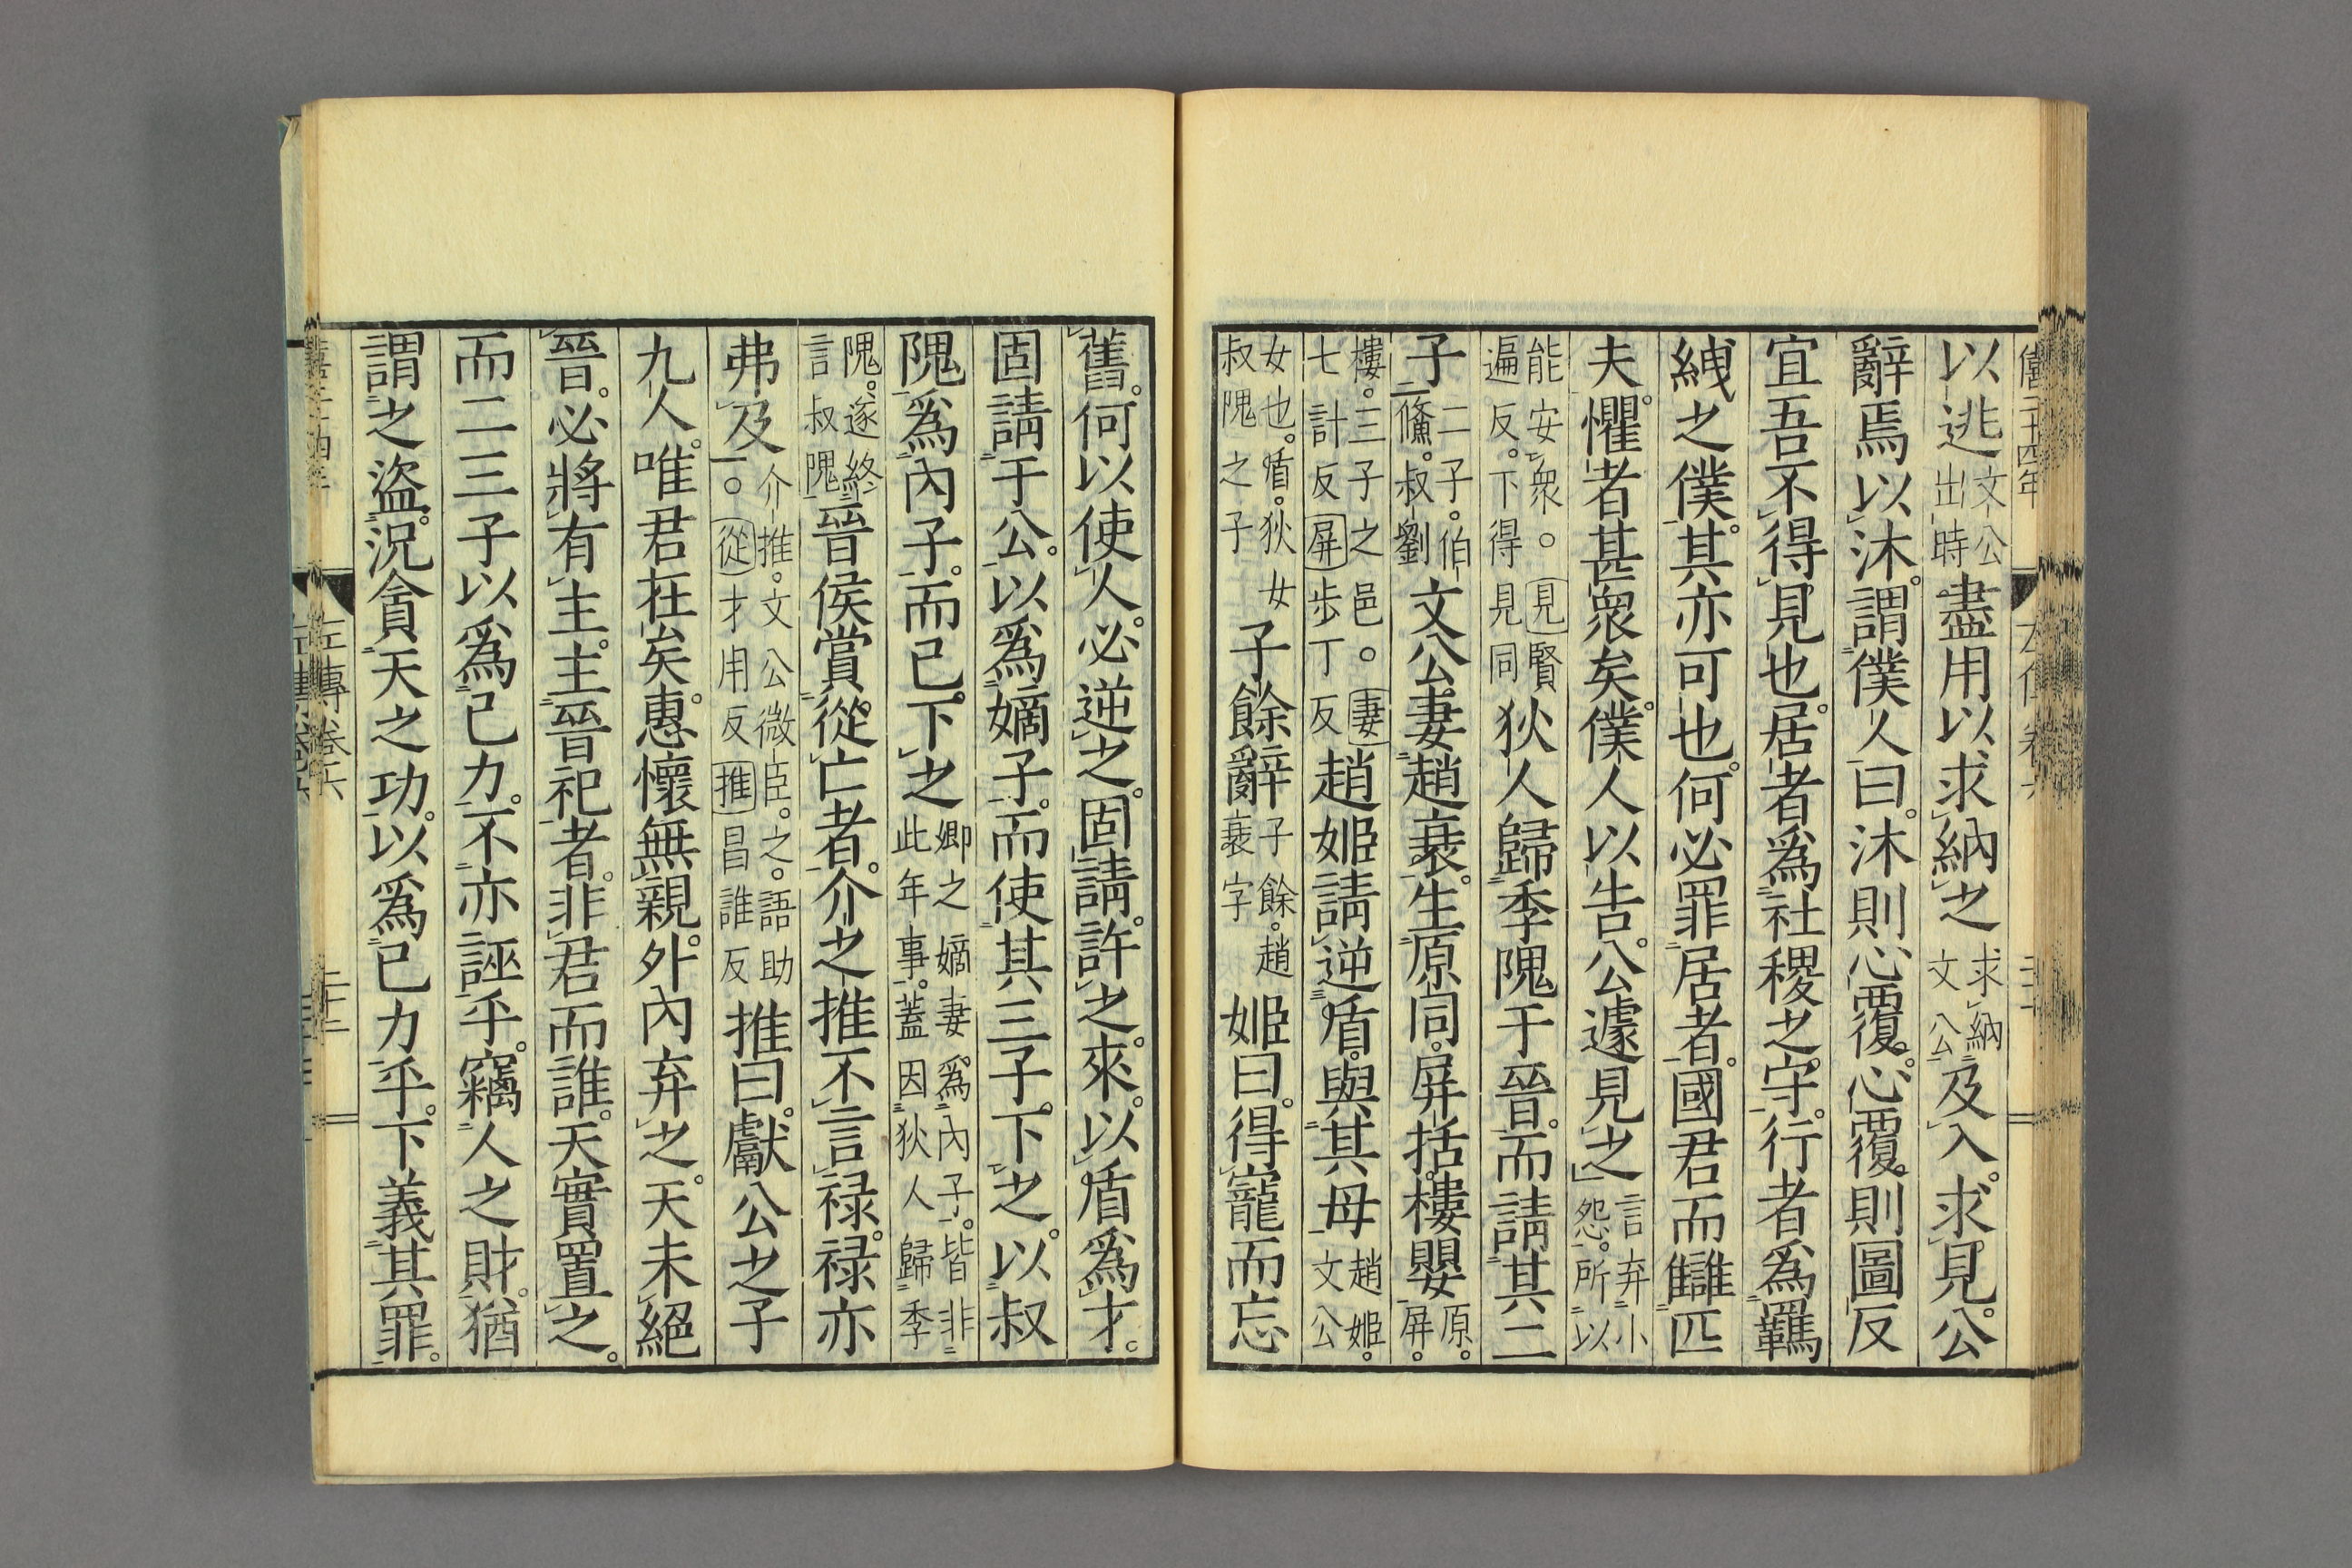 僖二十四年
以逃文公出時盡用以求納之求納文公及入求見公
辭焉以沐謂僕人曰沐則心覆心覆則圖反
宜吾不得見也居者爲社稷之守行者爲羈
絏之僕其亦可也何必罪居者國君而讎匹
夫懼者甚衆矣僕人以告公遽見之言弃小怨所以
能安衆○見賢遍反下得見同狄人歸季隗于晉而請其二
子二子伯儵叔劉文公妻趙衰生原同屏括樓嬰原屏
樓三子之邑○妻七計反屏步丁反趙姬請逆盾與其母趙姬文公
女也盾狄女叔隗之子子餘辭子餘趙衰字姬曰得寵而忘
舊何以使人必逆之固請許之來以盾爲才
固請于公以爲嫡子而使其三子下之以叔
隗爲內子而已下之卿之嫡妻爲內子皆非此年事蓋因狄人歸季
隗遂終言叔隗晉侯賞從亡者介之推不言禄禄亦
弗及介推文公微臣之語助○從才用反推昌誰反推曰獻公之子
九人唯君在矣惠懷無親外內弃之天未絕
晉必將有主主晉祀者非君而誰天實置之
而二三子以爲己力不亦誣乎竊人之財猶
謂之盜況貪天之功以爲己力乎下義其罪
左傳卷六